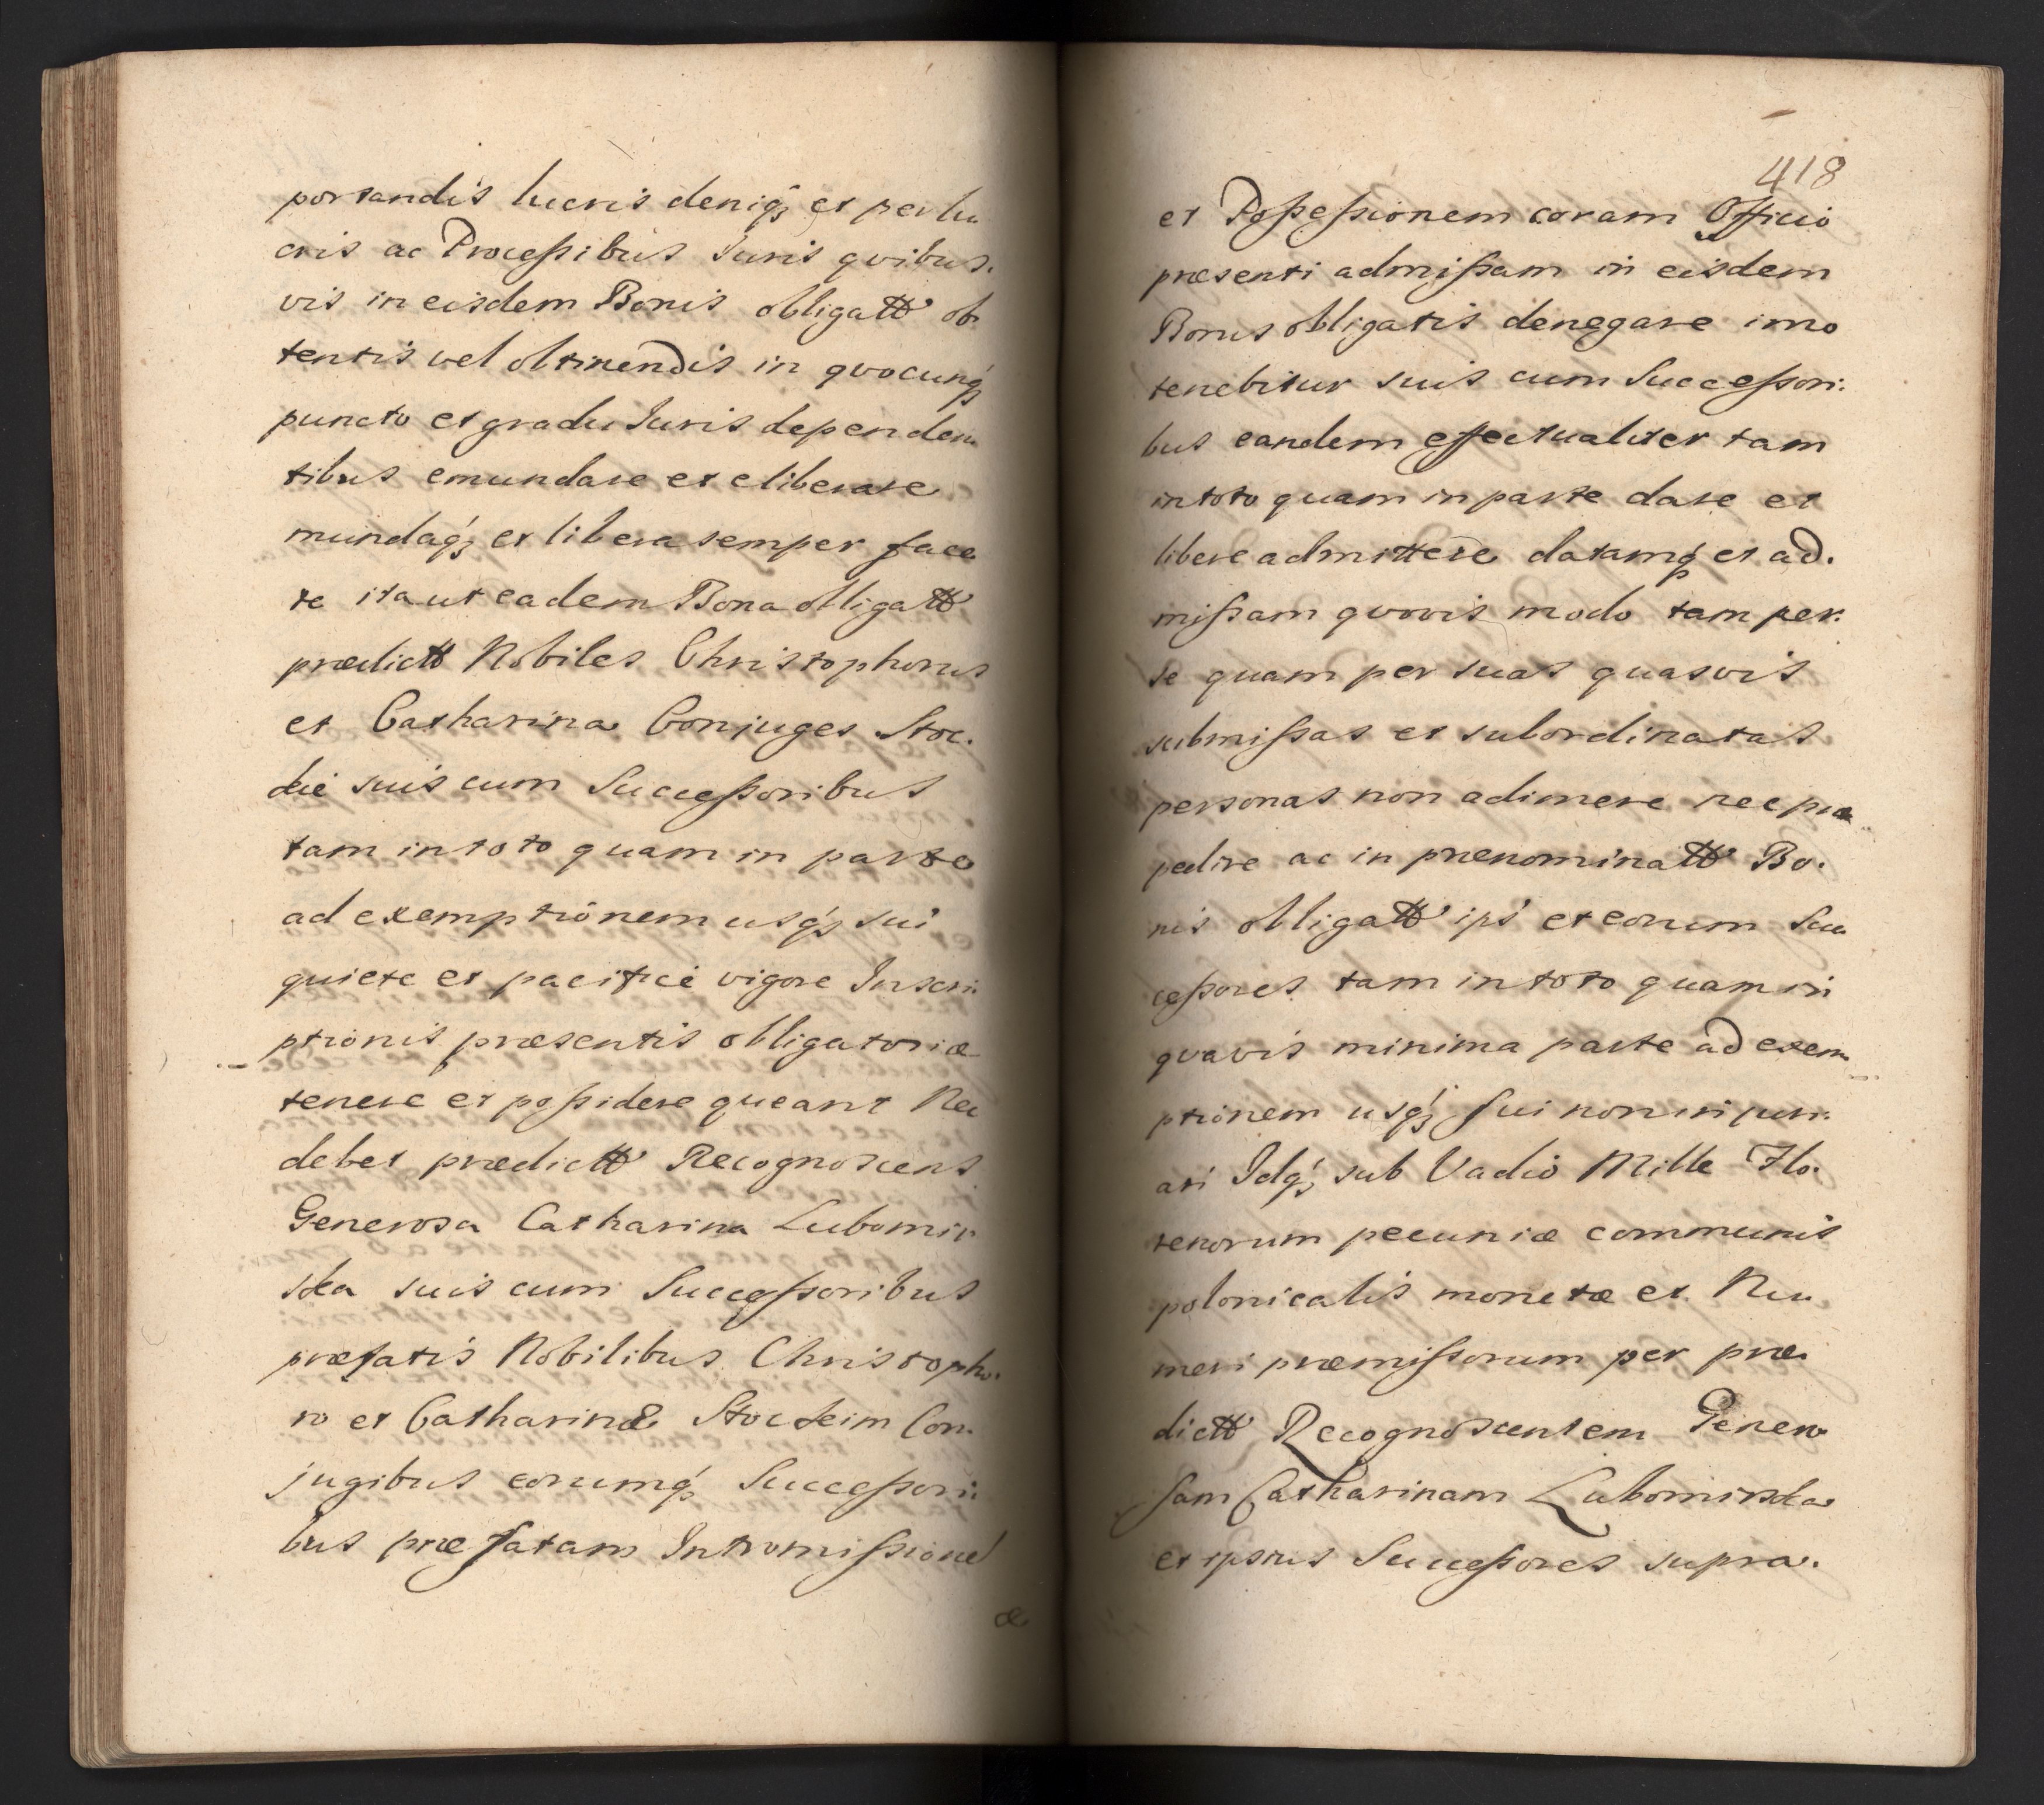 portandis lucris deniq₃ et perlu
cris ac Processibus Iuris qvibus.
vis in eisdem Bonis obligatt ob
tentis vel obtinendis in qvocunq₃
puncto et gradu Iuris dependen
tibus emundare et eliberare
mundaq₃ et libera semper face
re ita ut eadem Bona obligatt
prædictt Nobiles Christophorus
et Catharina Conjuges Stoc.
kie suis cum Successoribus
tam in toto quam in parte
ad exemptionem usq₃ sui
quiete et pacifice vigore Inscri
ptionis præsentis obligatoriæ
tenere et possidere queant Nec
debet prædictt Recognoscens
Generosa Catharina Lubomir
ska suis cum Successoribus
præfatis Nobilibus Christopho.
ro et Catharinæ Stockeim Con.
jugibus eorumq₃ Successori
bus præfatam Intromissione
&
418
et Possessionem coram Officio
præsenti admissam in eisdem
Bonis obligatis denegare imo
tenebitur suis cum Successori.
bus eandem effectualiter tam
in toto quam in parte dare et
libere admittere datamq₃ et ad.
missam qvovis modo tam per.
se quam per suas quasvis
submissas et subordinatas
personas non adimere nec præ
pedire ac in prænominatt Bo.
nis obligatt ips et eorum Suc
cessores tam in toto quam in
qvavis minima parte ad exem
ptionem usq₃ sui non injuri.
ari Idq₃ sub Vadio Mille Flo.
renorum pecuniæ communis
polonicalis monetæ et Nu
meri præmissorum per præ
dictt Recognoscentem Genero
sam Catharinam Lubomirska
et ipsius Successores supra.